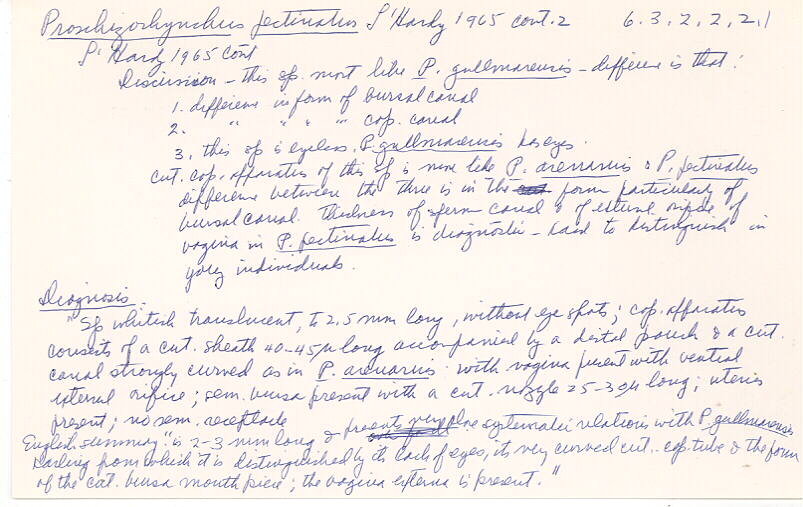 Proschizorhynchus pectinatus L'Hardy 1965 cont. 2 6.3.2.2.2.1
L'Hardy 1965 cont
Discussion - this sp. most like P. gullmarensis - difference is that:
1. difference in form of bursal canal
2. " " " " cop. canal
3. this sp is eyeless, P. gullmarensis has eyes.
cut. cop. apparatus of this sp is more like P. arenarius & P. pectinatus
difference between the three is in the form particularly of
bursal canal. Thickness of sperm canal & of external orifice of
vagina in P. pectinatus is diagnostic - hard to distinguish in
young individuals.
Diagnosis.
"Sp whitish translucent, to 2.5 mm long, without eye spots; cop. apparatus
consists of a cut. sheath 40-45µ long accompanied by a distal pouch & a cut.
canal strongly curved as in P. arenarius with vagina present with ventral
external orifice; sem. bursa present with a cut. nozzle 25-30µ long; uterus
present; no sem. receptacle
English summary: "is 2-3 mm long & presents very close systematic relations with P. gullmarensis
Karling from which it is distinguished by its lack of eyes, its very curved cut. cop. tube & the form
of the cut. bursa mouth piece; the vagina externa is present."